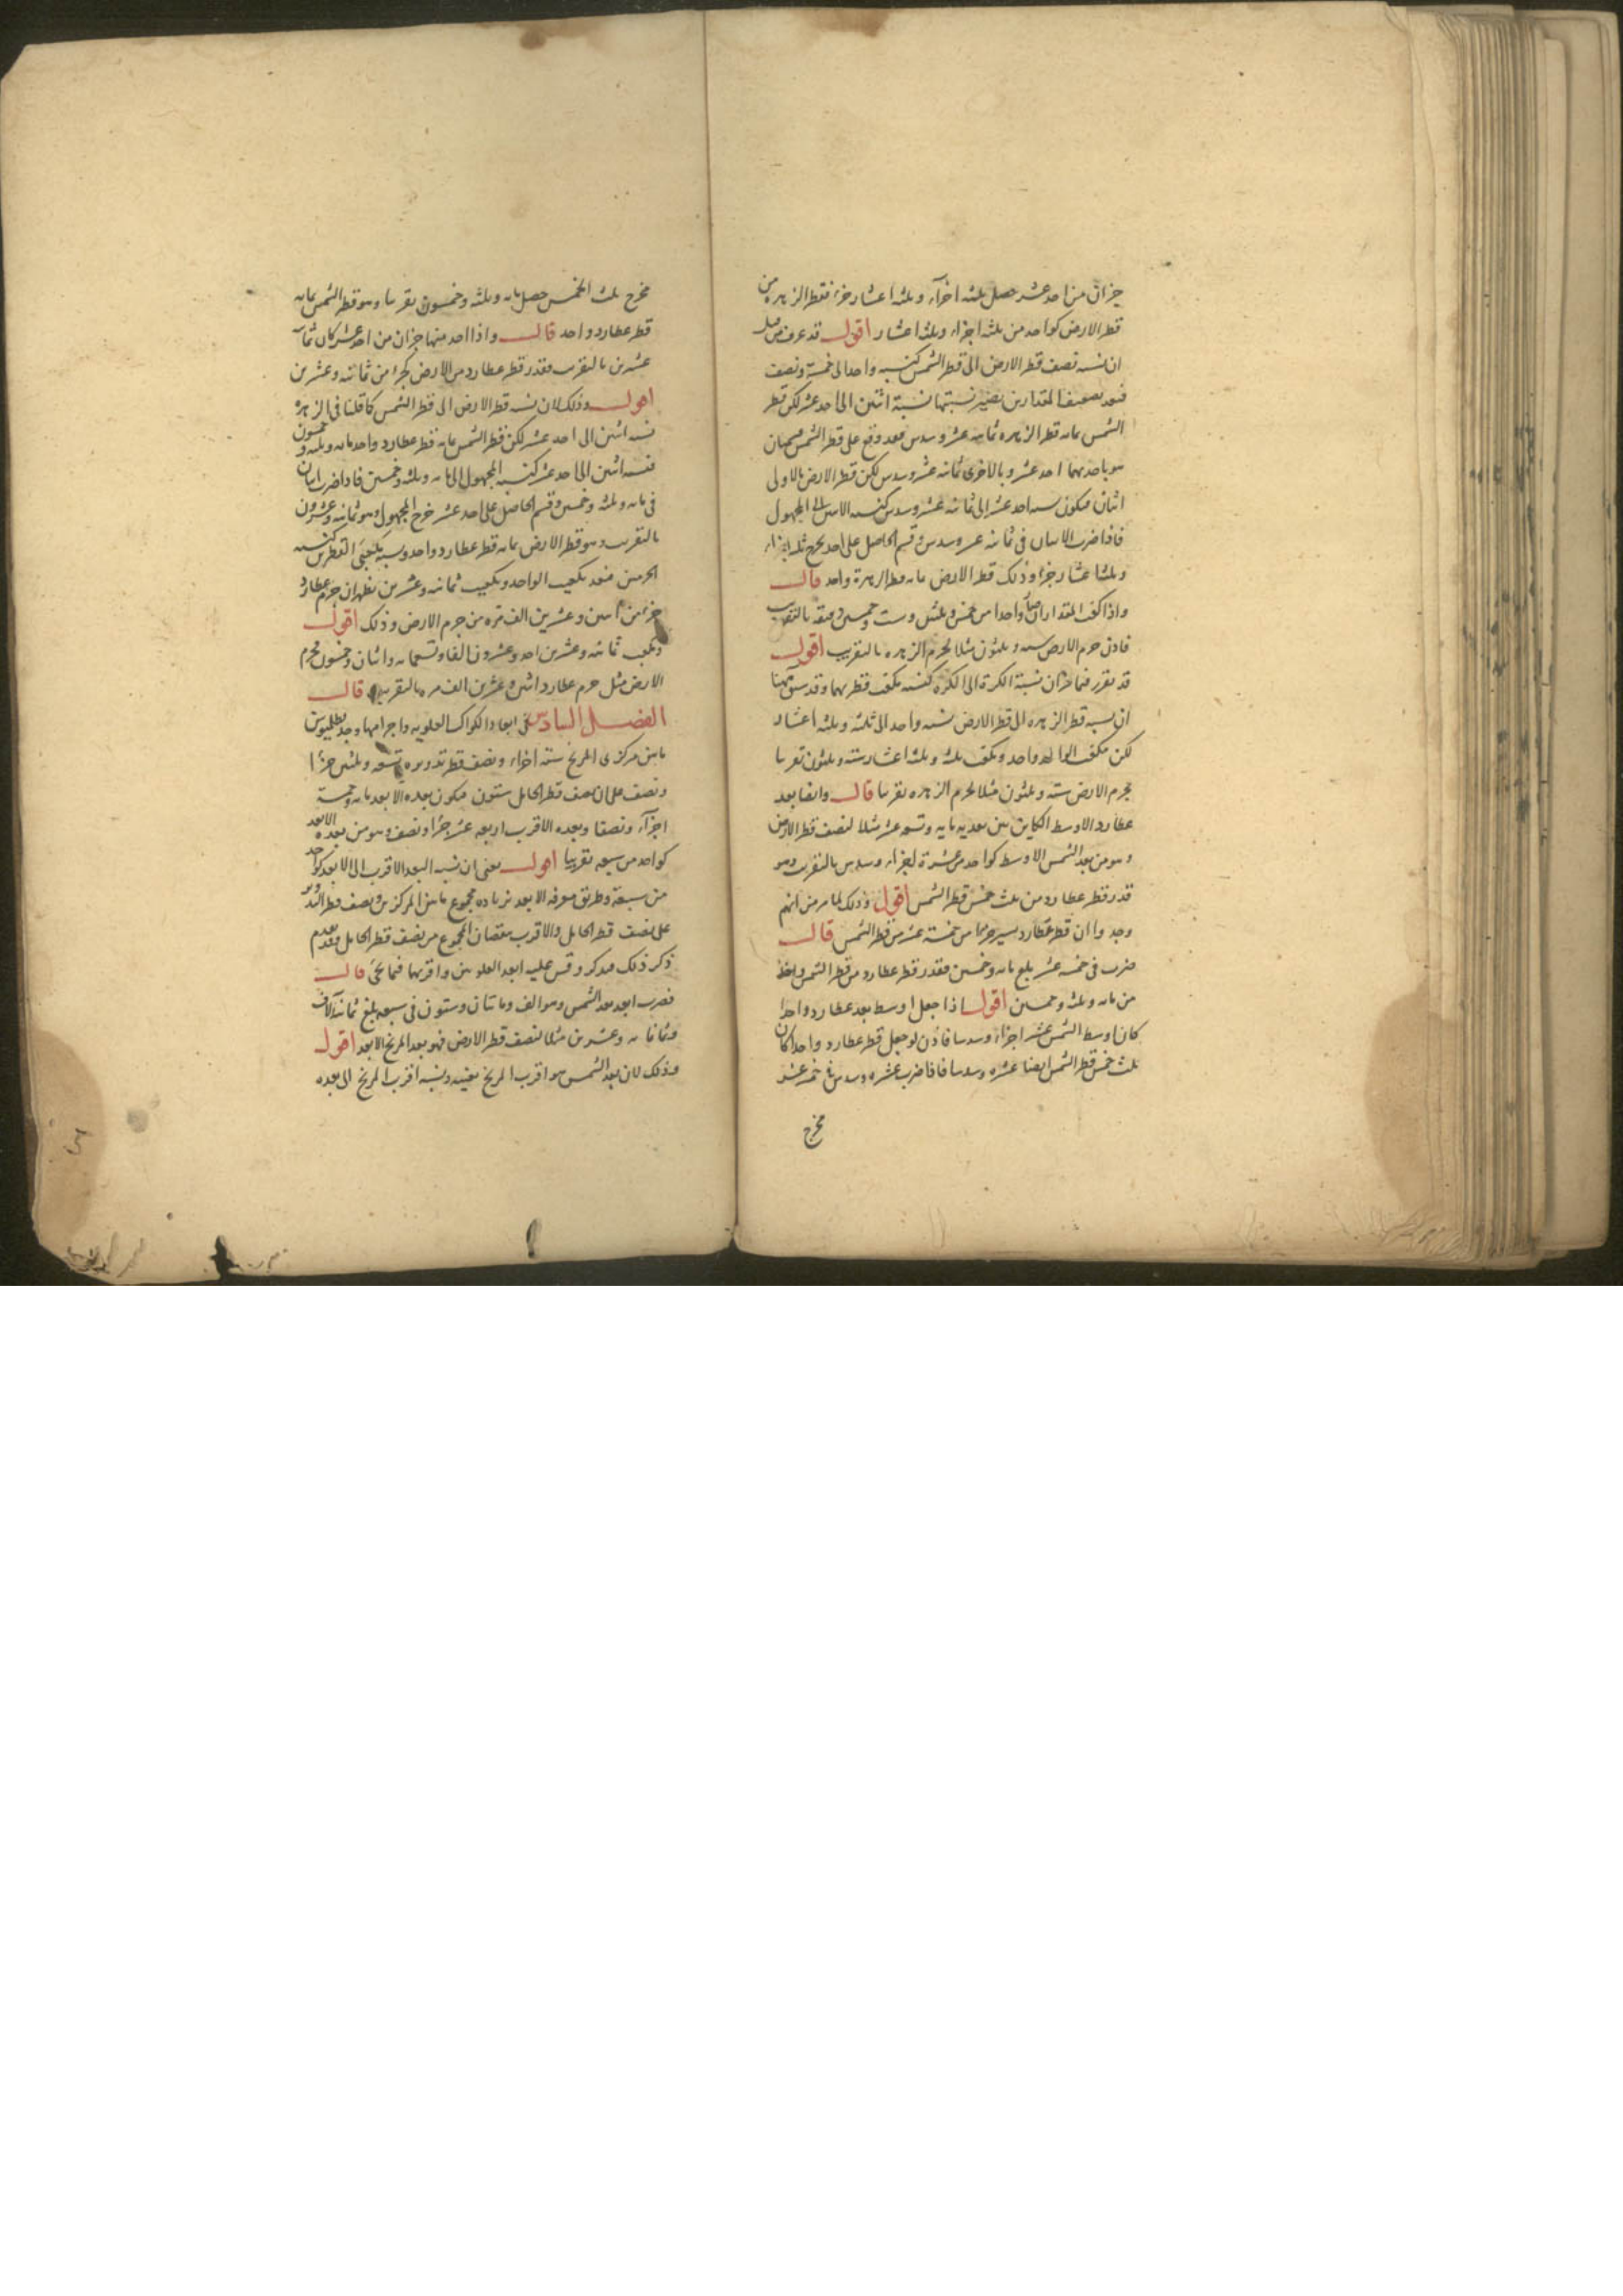 جزان من احد عشر حصل ثلثه اجزآء وثلثه اعشار جزء فقطر الزهره من
قطر الارض كواحد من ثلثه اجزاء وثلثه اعشار اقول قد عرف من قبل
ان نسبه نصف قطر الارض الى قطر الشمس كنسبه واحد الى خمسة ونصف
فبعد تضعيف المقدارين تصير نسبتهما نسبة اثنين الى احد عشر لكن قطر
الشمس مابه قطر الزهره ثمانيه عشر وسدس فقد وقع على قطر الشمس
هو باحديهما احد عشر وبالاخرى ثمانيه عشر وسدس لكن قطر الارض بالاولى
اثنان فيكون نسبه احد عشر الى ثمانيه عشر وسدس كنسبه الاثنين الى المجهول
فاذا ضرب الاثنان في ثمانيه عشر وسدس وقسم الحاصل على احد عشر خرج ثلثه اجزاء
وثلثه اعشار جزء وذلك قطر الارض مابه قطر الزهرة واحد قال
واذا كعب المقداران واحدا من خمس وثلثين وست وخمسين دقيقه بالتقريب
فاذن جرم الارض سته وثلثون مثلا لجرم الزهره بالتقريب اقول
قد تقرر فيما مر ان نسبة الكرة الى الكره كنسبه مكعب قطريهما وقد سبق ههنا
ان نسبه قطر الزهره الى قطر الارض نسبه واحد الى ثلثه وثلثه اعشاره
لكن مكعب الواحد واحد ومكعب ثلثه وثلثه اعشار سته وثلثون تقريبا
فجرم الارض سته وثلثون مثلا لجرم الزهره تقريبا قال وايضا بعد
عطارد الاوسط الكاين بين بعديه مايه وتسعه عشر مثلا لنصف قطر الارض
وهو من بعد الشمس الاوسط كواحد من عشرة اجزاء وسدس بالتقريب وهو
قدر قطر عطارد من ثلث خمس قطر الشمس اقول وذلك لما مر من انهم
وجدوا ان قطر عطارد يسير جزءا من خمسة عشر من قطر الشمس قال
ضرب في خمسه عشر بلغ مايه وخمسين فقدر قطر عطارد من قطر الشمس واحد
من مايه وثلثه وخمسين اقول اذا جعل اوسط بعد عطارد واحدا
كان اوسط الشمس عشر اجزاء وسدسا فاذن لو جعل قطر عطارد واحدا كان
ثلث خمس قطر الشمس ايضا عشره وسدسا فاذا ضرب عشره وسدس في خمسه عشر
مخرج
مخرج ثلث الخمس حصل مايه وثلثه وخمسون تقريبا وهو قطر الشمس مابه
قطر عطارد واحد قال واذا اخذ منها جزان من احد عشر كان ثمانيه
عشرين بالتقريب فقدر قطر عطارد من الارض كجزء من ثمانيه وعشرين
اقول وذلك لان نسبه قطر الارض الى قطر الشمس كما قلنا في الزهره
نسبه اثنين الى احد عشر لكن قطر الشمس مابه قطر عطارد واحد مايه وثلثه وخمسون
فنسبه اثنين الى احد عشر كنسبه المجهول الى مايه وثلثه وخمسين فاذا ضرب اثنان
في مايه وثلثه وخمسين وقسم الحاصل على احد عشر خرج المجهول وهو ثمانيه وعشرون
بالتقريب وهو قطر الارض مابه قطر عطارد واحد ونسبه مكعبي القطرين كنسبه
الجرمين فبعد تكعيب الواحد وتكعيب ثمانيه وعشرين يظهر ان جرم عطارد
جزء من اثنين وعشرين الف مره من جرم الارض وذلك اقول
ومكعب ثمانيه وعشرين احد وعشرون الفا وتسعمايه واثنان وخمسون فجرم
الارض مثل جرم عطارد اثنين وعشرين الف مره بالتقريب قال
الفصل السادس في ابعاد الكواكب العلويه واجرامها وجد بطلميوس
ما بين مركزى المريخ سته اجزاء ونصف قطر تدويره تسعه وثلثين جزءا
ونصف على ان نصف قطر الحامل ستون فيكون بعده الابعد مايه وخمسة
اجزآء ونصفا وبعده الاقرب اربعه عشر جزءا ونصف وهو من بعده الابعد
كواحد من سبعه تقريبا اقول يعنى ان نسبه البعد الاقرب الى الابعد كواحد
من سبعة وطريق معرفه الابعد بزياده مجموع ما بين المركزين ونصف قطر التدوير
على نصف قطر الحامل والاقرب بنقصان المجموع من نصف قطر الحامل وقد تقدم
ذكر ذلك فيذكر وقس عليه ابعد العلويين واقربهما فيما يجئ قال
فضرب ابعد بعد الشمس وهو الف ومائتان وستون في سبعه بلغ ثمانيه آلاف
وثمانمايه وعشرين مثلا لنصف قطر الارض فهو بعد المريخ الابعد اقول
وذلك لان بعد الشمس هو اقرب المريخ بعينه ونسبه اقرب المريخ الى بعده